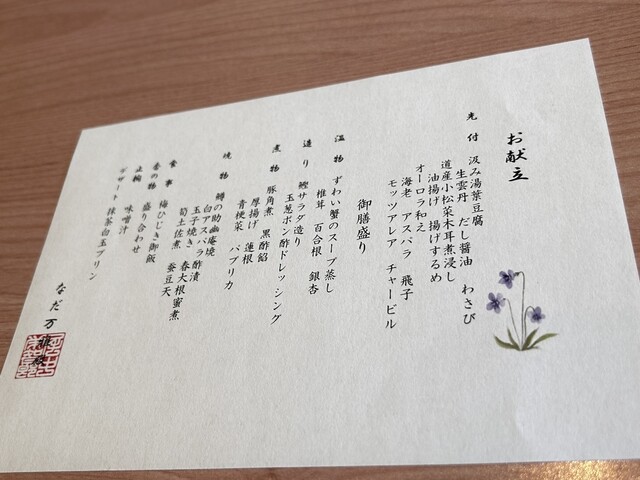 お献立
先付 汲み湯葉豆腐
生雲丹 だし醤油 わさび
道産小松菜木耳煮浸し
油揚げ 揚げするめ
オーロラ和え
海老 アスパラ 飛子
モッツアレア チャービル
御膳盛り
温物 ずわい蟹のスープ蒸し
椎茸 百合根 銀杏
造り 鰹サラダ造り
玉葱ポン酢ドレッシング
煮物 豚角煮 黒酢餡
厚揚げ 蓮根
青梗菜 パプリカ
焼物 鰆の助幽庵焼
白アスパラ酢漬
玉子焼き 春大根蜜煮
筍土佐煮 蚕豆天
食事 梅ひじき御飯
香の物 盛り合わせ
止椀 味噌汁
デザート 抹茶白玉プリン
なだ万